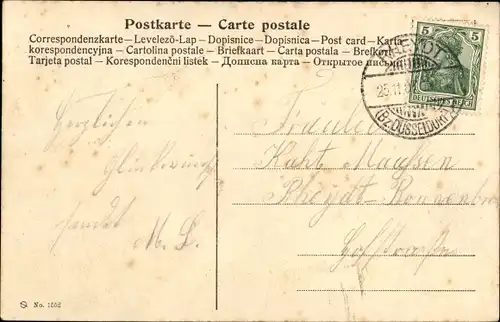 Postkarte — Carte postale
Correspondenzkarte – Levelező-Lap – Dopisnice – Dopisnica – Post card – Karta
korespondencyjna – Cartolina postale – Briefkaart – Carta postala – Brefkort
Tarjeta postal – Korespondenčni listek – Дописна карта – Открытое письмо
5 5
DEUTSCHES REICH
RHEYDT
25.11.
(BZ. DÜSSELDORF)
Herzlichen
Glückwunsch
sendet
M. L.
Fräulein
Kath. Maassen
Rheydt-
No. 1552